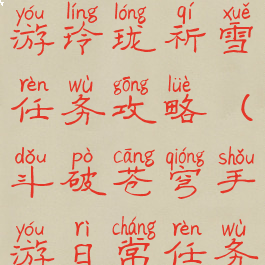 yóu líng lóng qí xuě
游玲珑祈雪
rèn wù gōng lüè
任务攻略（
dǒu pò cāng qióng shǒu
斗破苍穹手
yóu rì cháng rèn wù
游日常任务